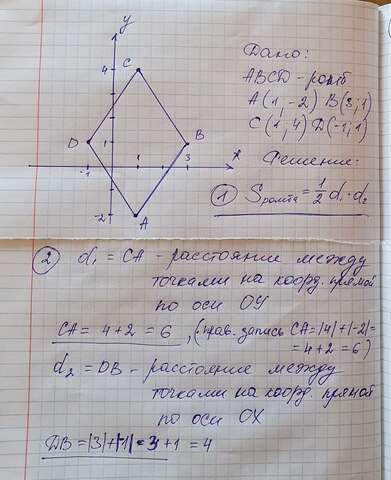 y
4
C
D
1
B
-1
1
3
x
-2
A
Дано:
ABCD - ромб
A(1,-2) B(3;1)
C(1,4) D(-1,1)
Решение:
① Sромба = 1/2 d₁·d₂
② d₁ = CA - расстояние между
точками на коорд. прямой
по оси ОУ
CA = 4+2 = 6, (прав. запись CA=|4|+|-2|=
= 4+2 = 6)
d₂ = DB - расстояние между
точками на коорд. прямой
по оси ОХ
DB = |3|+|-1| = 3+1 = 4